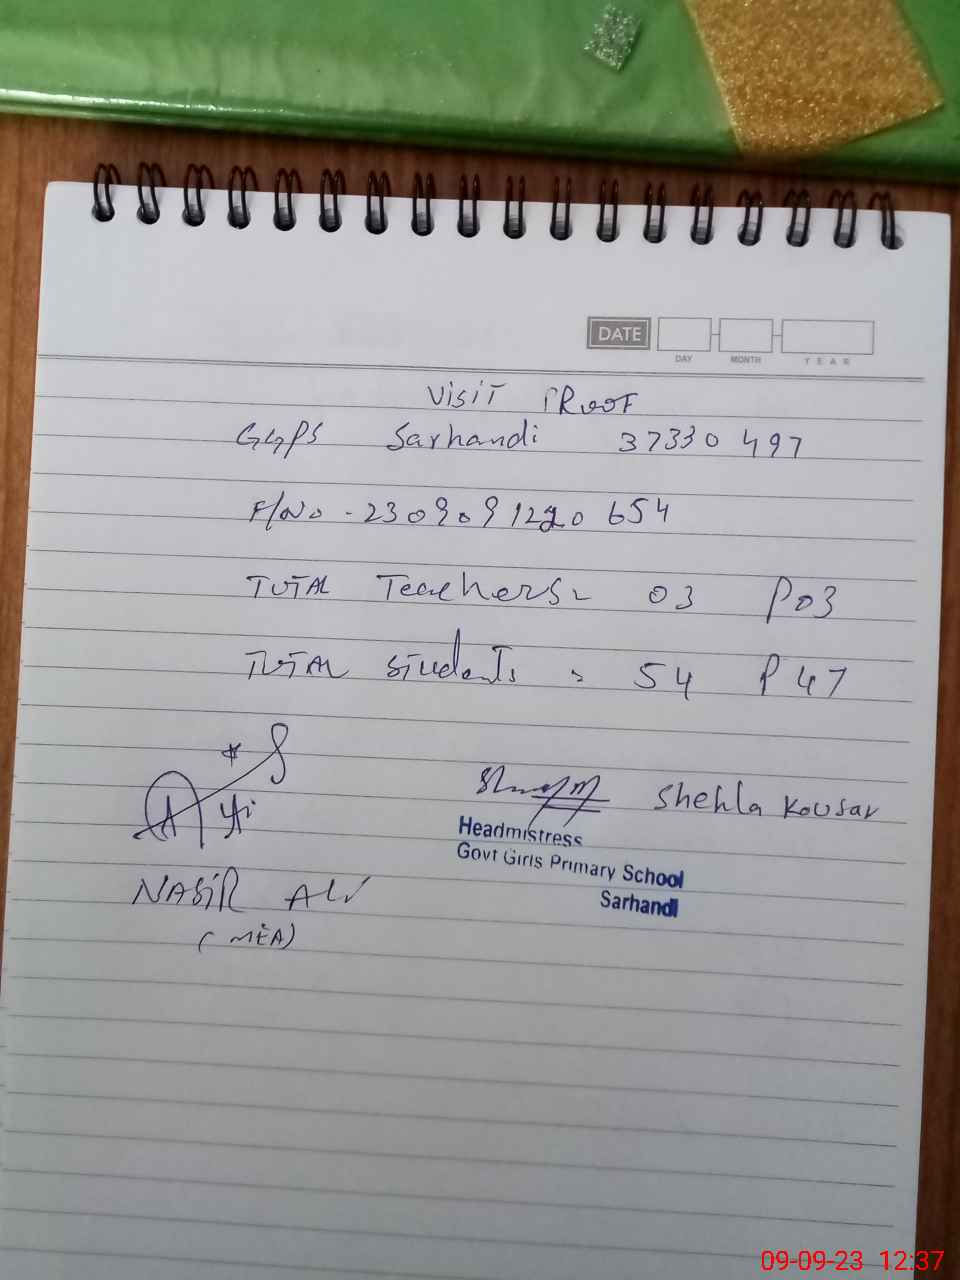 DATE
DAY MONTH YEAR
Visit PROOF
GGPS Sarhandi 37330497
F/No - 2309091220654
TOTAL Teachers = 03 P03
TOTAL Students = 54 P 47
Shehla Kousar
Headmistress
Govt Girls Primary School
Sarhandi
NASIR ALI
(MEA)
09-09-23 12:37